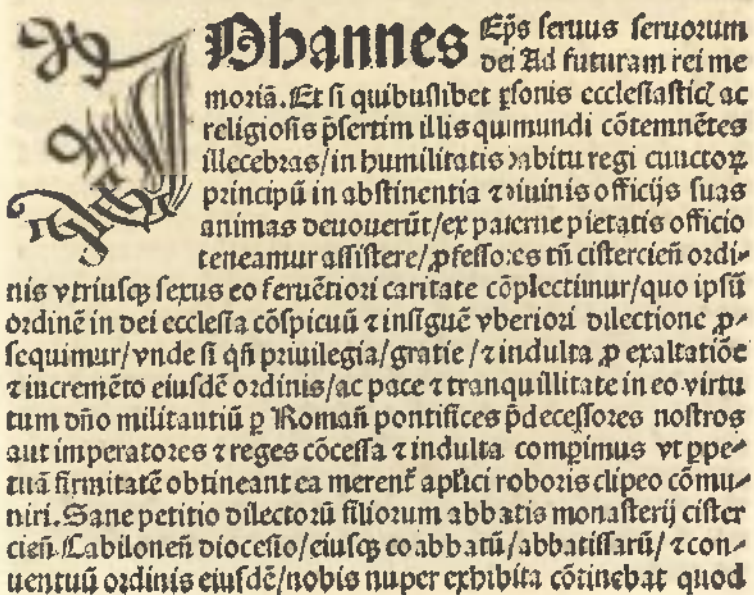 Johannes Ep̃s seruus seruorum
dei Ad futuram rei me
moriã. Et si quibuslibet ꝑsonis ecclesiasticꝭ ac
religiosis p̃sertim illis qui mundi cõtemnẽtes
illecebras/in humilitatis habitu regi cunctoꝝ
principũ in abstinentia ⁊ diuinis officijs suas
animas deuouerũt/ex paterne pietatis officio
teneamur assistere/ꝓfessores tñ cistercieñ ordi⸗
nis vtriusqꝫ sexus eo feruẽtiori caritate cõplectimur/quo ipsũ
ordinẽ in dei ecclesia cõspicuũ ⁊ insiguẽ vberiori dilectione ꝓ⸗
sequimur/vnde si qñ priuilegia/gratie/⁊ indulta ꝓ exaltatiõe
⁊ incremẽto eiusdẽ ordinis/ac pace ⁊ tranquillitate in eo virtu
tum dño militantiũ ꝑ Romañ pontifices p̃decessores nostros
aut imperatores ⁊ reges cõcessa ⁊ indulta comp̃imus vt ꝑpe⸗
tuã firmitatẽ obtineant ea merent᷑ apľici roboris clipeo cõmu⸗
niri. Sane petitio dilectorũ filiorum abbatis monasterij cister
cieñ. Cabiloneñ diocesio/eiusqꝫ coabbatũ/abbatissarũ/⁊ con⸗
uentuũ ordinis eiusdẽ/nobis nuper exhibita cõtinebat quod